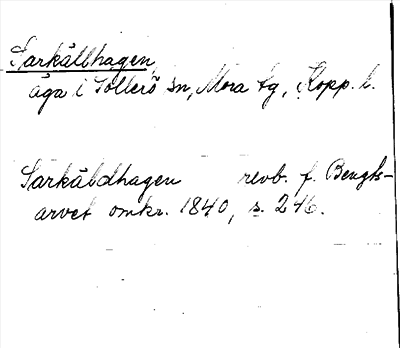 Sarkällhagen,
äga i Sollerö sn, Mora tg, Kopp. l.
Sarkäldhagen revb. f. Bengts-
arvet omkr. 1840, s. 246.